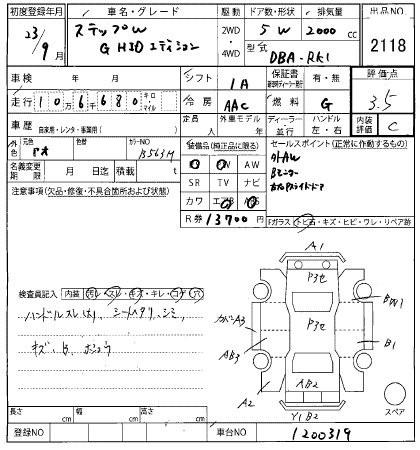 初度登録年月 車名・グレード 駆動 ドア数・形状 排気量 出品NO
23/9月 ステップW G HID エディション 2WD ・ 4WD 5 W 2000 cc 2118
型式 DBA-RK1
車検 年 月 シフト IA 保証書 有・無 評価点
走行 10万6千680 キロ・マイル 冷房 AAC 燃料 G 3.5
車歴 自家用・レンタ・事業用( ) 定員 人 外車モデル 年 ディーラー 並行 ハンドル 左・右 内装評価 C
外色 元色 色替 カラーNO B563M
装備品(純正品に限る) セールスポイント(正常に作動するもの)
名義変更期限 月 日迄 積載 t
SR TV ナビ
カワ エアB
注意事項(欠品・修復・不具合箇所および状態)
R券 13700 円
Fガラス トビ石・キズ・ヒビ・ワレ・リペア跡
A1
P3セ
P3セ
カバーA3
AB3
B1
A2
AB2
Y1B2
スペア
検査員記入 内装
ハンドルスレ
キズ
長さ cm 幅 cm 高さ cm
登録NO 車台NO 1200319